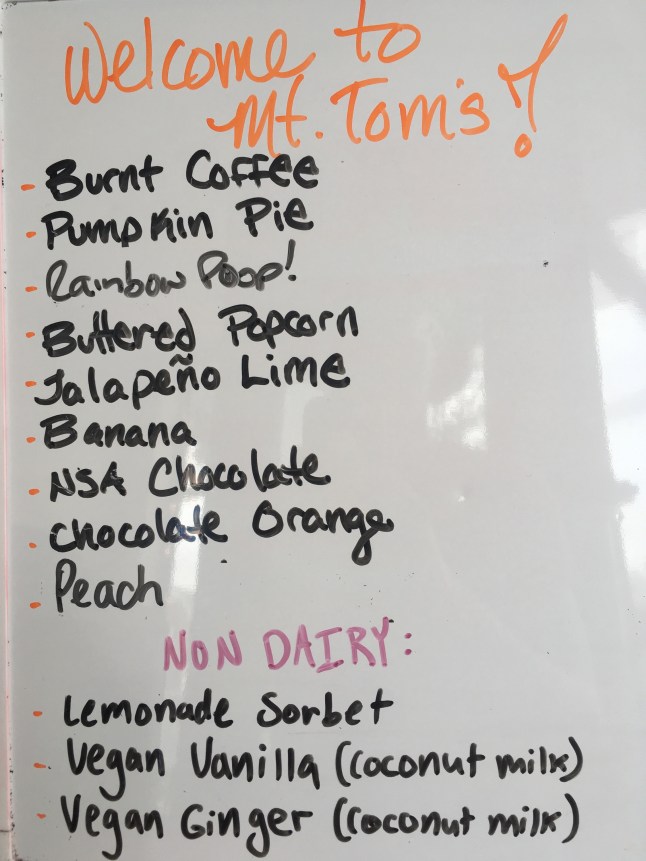 Welcome to
Mt. Tom's!
- Burnt Coffee
- Pumpkin Pie
- Rainbow Poop!
- Buttered Popcorn
- Jalapeño Lime
- Banana
- NSA Chocolate
- Chocolate Orange
- Peach
NON DAIRY:
- Lemonade Sorbet
- Vegan Vanilla (coconut milk)
- Vegan Ginger (coconut milk)